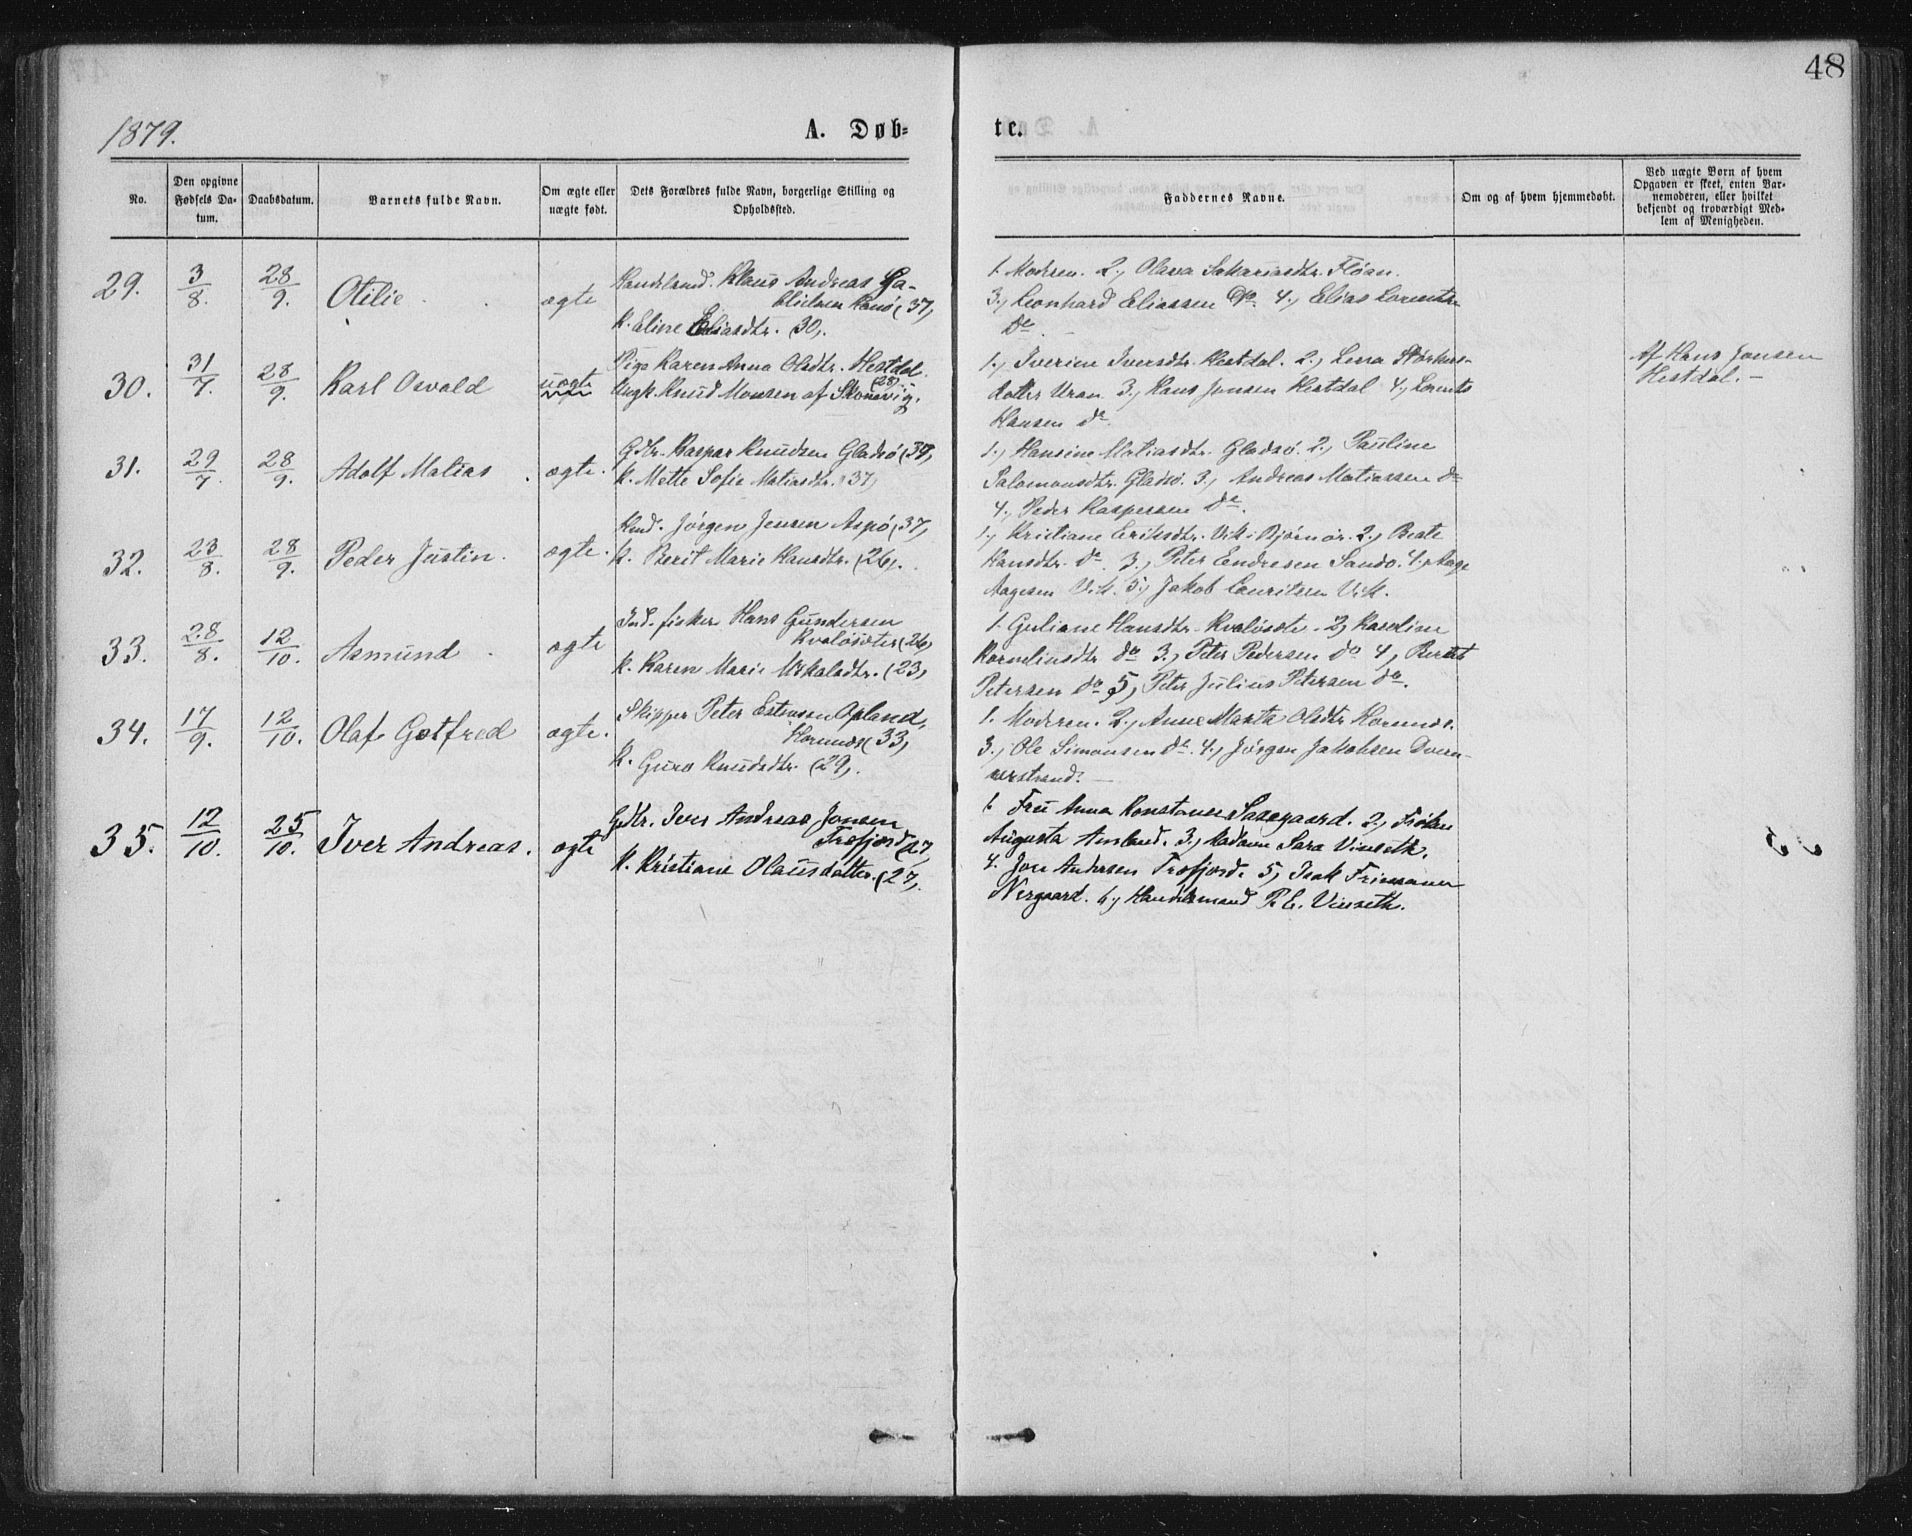 48
1879.
A. Døb-
te.
No.
Den opgivne Fødsels Da-tum.
Daabsdatum.
Barnets fulde Navn.
Om ægte eller uægte født.
Dets Forældres fulde Navn, borgerlige Stilling og Opholdssted.
Faddernes Navne.
Om og af hvem hjemmedøbt.
Ved uægte Børn af hvem Opgaven er skeet, enten Bar-nemoderen, eller hvilket bekjendt og troværdigt Med-lem af Menigheden.
29.
3/8.
28/9.
Otilie
ægte
Klaus Andreas Ga-
blielsen (37)
K. Eline Eliasdtr. (30).
1. Modren. 2., Olava Sakariasdtr. Fløan.
3., Leonhard Eliassen do. 4., Elias Lorents
do
30.
31/7.
28/9.
Karl Oswald
uægte
Pige Karen Anna Olsdtr. Hestdal.
(28)
Ungk. Knud Monsen af Skonevig.
1., Iverine Iversdtr. Hestdal. 2., Lena
datter Uran. 3., Hans Jonsen Hestdal 4., Lorents
Hansen do
Af Hans Jonsen
Hestdal. -
31.
29/7.
28/9.
Adolf Matias
ægte.
Gdbr. Kaspar Knudsen Gladsø (39)
K. Mette Sofie Matiasdtr. (37)
1., Hansine Matiasdtr. Gladsø. 2., Pauline
Salomonsdtr. Gladsø. 3., Andreas Matiassen do
4., Peder Kaspersen do.
32.
23/8.
28/9.
Peder Justin.
ægte.
Jørgen Jensen Aspø (37)
K. Berit Marie Hansdtr. (26).
1., Kristiane Eriksdtr. Vik i Bjørnør. 2., Beate
Hansdtr. do 3., Peter Endresen Sandø. 4., Aage
Aagesen Vik. 5., Jakob Lauritsen Vik.
33.
28/8.
12/10.
Asmund
ægte
Ind. fisker Hans Gundersen
Kvaløsæter (26)
K. Karen Marie Mikalsdtr. (23)
1. Guliane Hansdtr. Kvaløsæte. 2, Kaseline
Korneliusdtr do 3., Peter Pedersen do 4,
Petersen do 5, Peter Julius Petersen do.
34.
17/9.
12/10.
Olaf Gotfred
ægte.
Skipper Peter Estensen Opland,
(33)
K. Guro Knudsdtr. (29).
1. Modren. 2., Anne Marita Olsdtr
3., Ole Simonsen do. 4., Jørgen Jakobsen
35.
12/10.
25/10.
Iver Andreas.
ægte
Gdbr. Iver Andreas Jonsen
Trefjord (27)
K. Kristiane Olausdatter. (27).
1. Fru Anna Konstanse Saxegaard. 2., Frøken
Augusta 3., Madam Sara Vinseth.
4. Jon Andersen Trefjord. 5, Isak
Nergaard. 6., Handelsmand P. E. Vinseth.